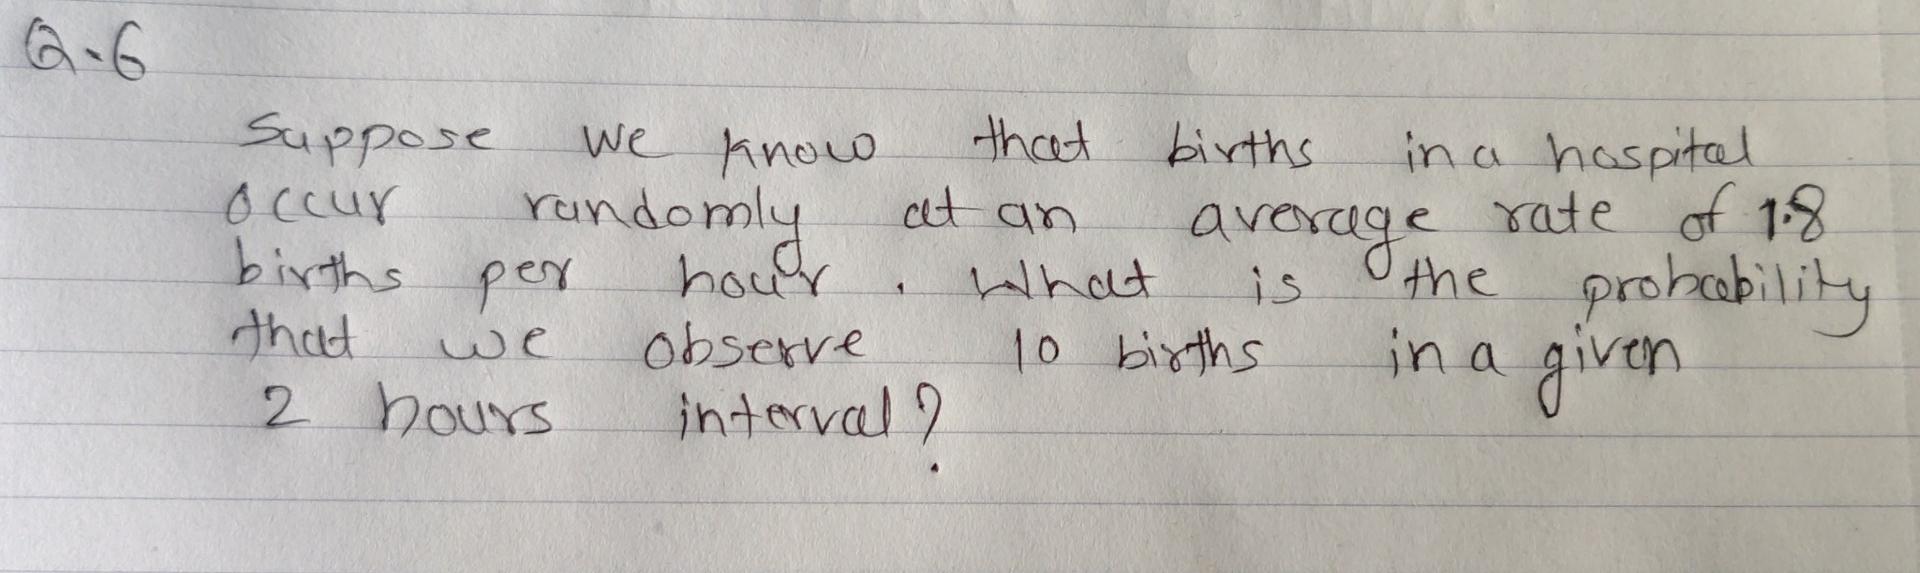 Q.6
Suppose we know that births in a hospital
occur randomly at an average rate of 1.8
births per hour. What is the probability
that we observe 10 births in a given
2 hours interval?